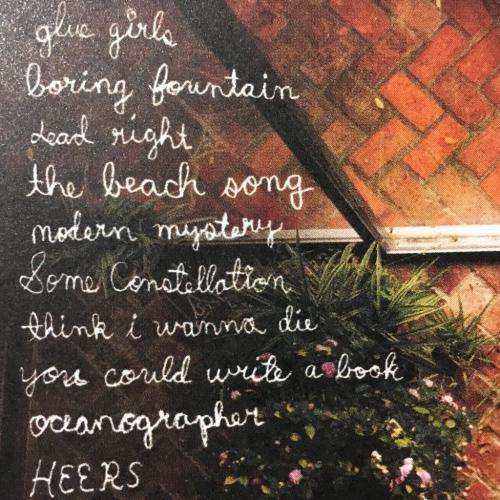 glue girls
boring fountain
dead right
the beach song
modern mystery
Some Constellation
think i wanna die
you could write a book
oceanographer
HEERS